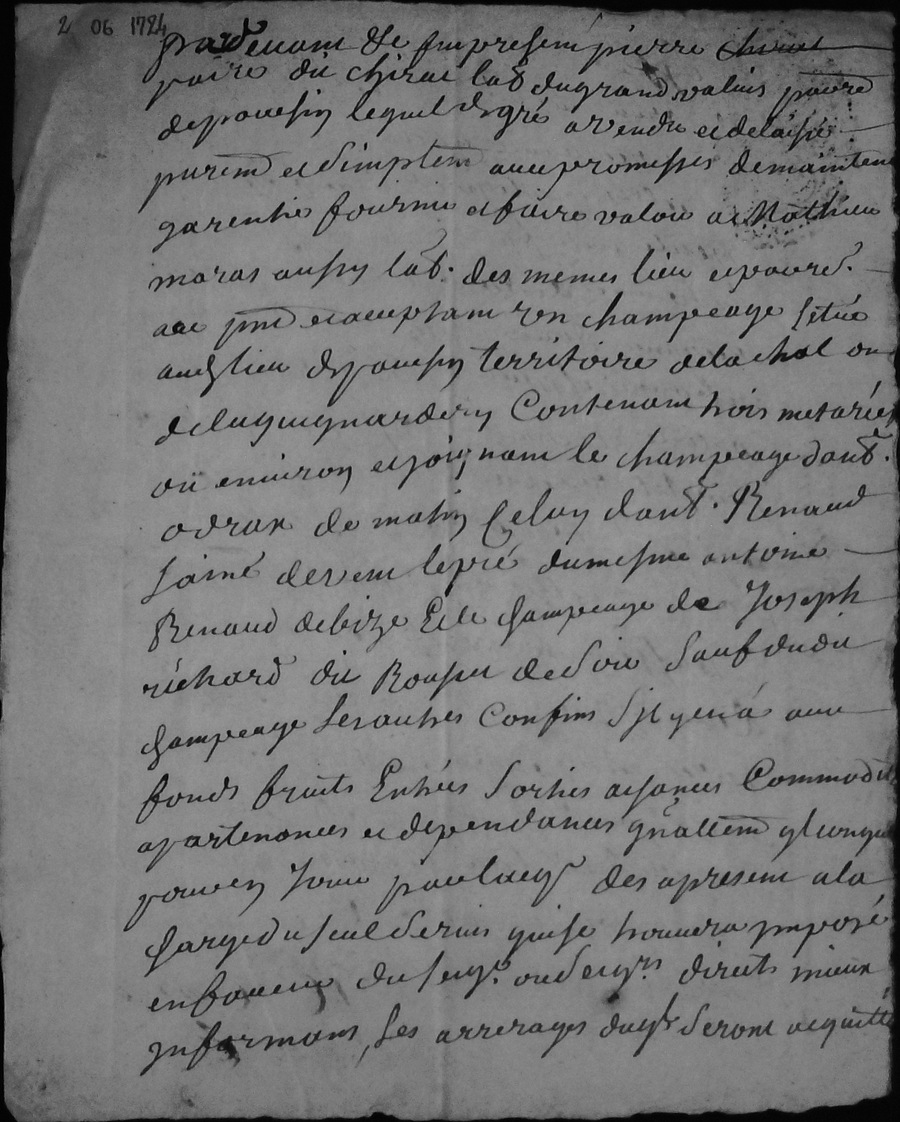 2 06 1724
pardevant de fut present pierre
poire dit chirat lab. du grand valins paroi
de pouchin lequel de gré a vendu et delaissé
purem et simplem avec promesses de maintenir
garentir fournir et faire valoir a Mathieu
maras aussy lab. des memes lieu et paroi.
ace pnt et acceptant un champeage situé
audt lieu de pouchin territoire de la chal ou
de la guignardery Contenant trois metarées
ou environ et joignant le champeage d'ant.
odran de matin Celuy d'ant. Renaud
l'ainé de vent le pré du mesme antoine
Renaud de bize Et le champeage de Joseph
richard dit Rousset de soir sauf dudit
champeage ses autres Confins s'il y en a avec
fonds fruits Entrées sorties aisances Commodit
apartenances et dependances gnallem quconque
pour en jouir par lacqr des apresent a la
charge du seul servis qui se trouvera imposé
en faveur du seigr. ou seigrs directs mieux
informans, les arrerages duql seront acquittés